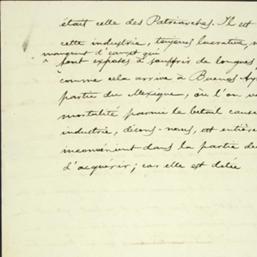 était celle des Patriarches. Il est
cette industrie, toujours lucrative, n
manquent d'
sont exposés à souffrir de longues
comme cela arrive à Buenos Ay
partie du Mexique, où l'on v
mortalité parmi le bétail cause
industrie, disons-nous, est entière
inconvénient dans la partie de
d'acquérir; car elle est dotée